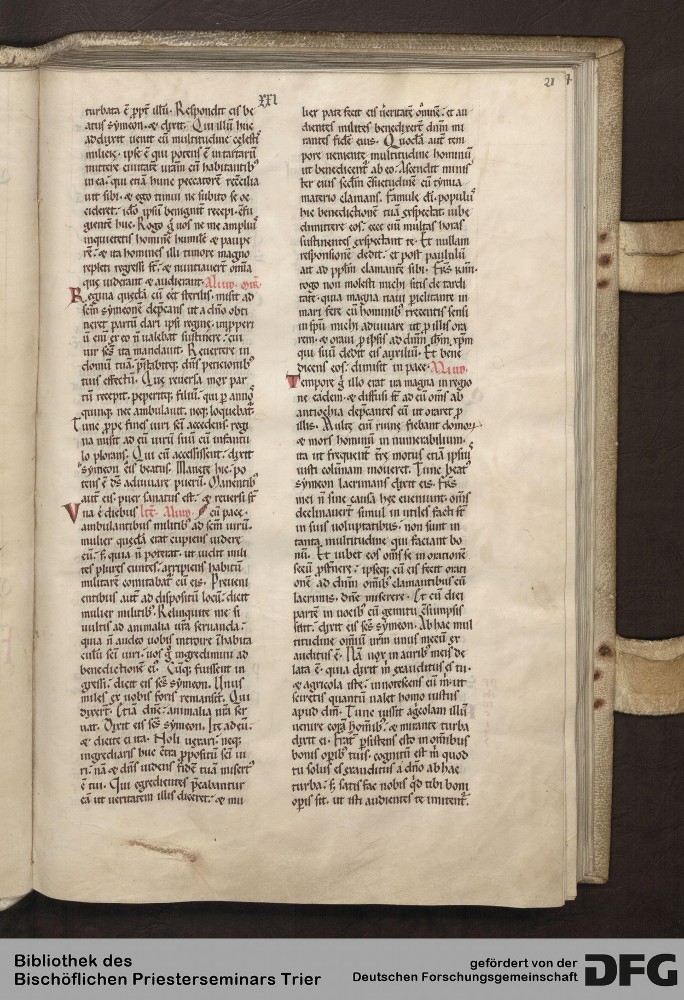 XXI
21
turbata ē ꝓpt̄ illū. Respondit eis be
atus symeon. & dixit. Qui illū huc
adduxit uenit cū multitudine celestis
milicie. ipse ē qui potens ē in tartarū
mittere ciuitatē ur̄am cū habitantibꝫ
in ea. qui etiā hunc peccatorē recōcilia
uit sibi. & ego timui ne subito se oc
cideret. ido ipsū benignit̄ recepi. cōfu
gientē huc. Rogo g̊ uos ne me ampliꝰ
inquietetis hominē humilē & paupe
rē. & ita homines illi timore magno
repleti regressi st̄. & nuntiauert̄ om̄ia
que uiderant & audierant. Aliud. mir̄.
Regina quedā cū eēt sterilis. misit ad
sc̄m symeonē dep̄cans ut a dn̄o obti
neret partū dari ipsi regine.
uir sc̄s ita mandauit. Reuertere in
domū tuā. dn̄s peticionibꝫ
tuis effectū. Que reuersa mox par
tū recepit. peperitqꝫ filiū. qui ꝑ annoꝫ
quinqꝫ nec ambulauit. neqꝫ loquebat̄.
Tunc ꝓpe fines uiri sc̄i accedens. regi
na misit ad eū uirū suū cū infantu
lo plorans. Qui cū accessissent. dixit
symeon eis beatus. Manete hic. po
tens ē dn̄s adiuuare puerū. Manentibꝫ
aut̄ eis. puer sanatus est. & reuersi st̄
Vna ē diebus Itē. Aliud. cū pace.
ambulantibus militibꝫ ad sc̄m uirū.
mulier quedā erat cupiens uidere
eū. s; quia n̄ poterat. ut uidit mili
tes plures euntes. arripiens habitū
militarē comitabat̄ cū eis. Preueni
entibus aut̄ ad dispositū locū. dicit
mulier militibꝫ. Relinquite me si
uultis ad animalia ur̄a seruanda.
quia n̄ audeo uobiscū introire
culū sc̄i uiri. uos g̊ ingredimini ad
benedictionē ei. Cūqꝫ fuissent in
gressi. dicit eis sc̄s symeon. Unus
miles ex uobis foris remansit. Qui
dixert̄. Etiā dn̄e. animalia ur̄a ser
uat. Dixit eis sc̄s symeon. Ite ad eū.
& dicite ei ita. Noli uexari. neqꝫ
ingrediaris huc ēt̄a ꝓpositū sc̄i ui
ri. nā & dn̄s uidens fidē tuā misertꝰ
ē tui. Qui egredientes p̄cabantur
eā ut ueritatem illis diceret. & mu
lier pate fecit eis ueritatē om̄nē. et au
dientes milites benedixert̄ dn̄m mi
rantes fidē eius. Quodā aut̄ tem
pore ueniente multitudine hominū
ut benedicerent̄ ab eo. Ascendit minis
ter eius scd̄m c̄suetudinē cū tymia
materio clamans. Famule dī. populꝰ
hic benedictionē tuā exspectat. iube
dimittere eos. ecce enī multas horas
sustinentes exspectant te. Et nullam
responsionē dedit. et post paululū
ait ad pp̄lm clamantē sibi. Fr̄s km̄i.
rogo non molesti michi sitis de tardi
tate. quia magna naui periclitante in
mari fere cū hominibꝫ trecentis sensi
in sp̄u michi adiuuare ut ꝓ illis ora
rem. & oraui ꝓ ipsis ad dn̄m ih̄m xp̄m
qui suū dedit eis auxiliū. Et bene
dicens eos. dimisit in pace. Aliud.
Tempore g̊ illo erat ua magna in regio
ne eadem. & diffusi st̄ ad eū om̄s ab
antiochia dep̄cantes eū ut oraret ꝓ
illis. Multe enī ruine fiebant domoꝝ.
& mors hominū in numerabilium.
ita ut frequent̄ tr̄e motus etiā ipsiꝰ
iusti colūnam moueret. Tunc beatꝰ
symeon lacrimans dixit eis. Fr̄s
mei n̄ sine causa hęc eueniunt. om̄s
declinauert̄ simul in utiles facti st̄
in suis uoluptatibus. non sunt in
tanta multitudine qui faciant bo
nū. Et iubet eos om̄s se in orationē
secū ꝓst̄nere. ipseqꝫ cū eis fecit orati
onē ad dn̄m om̄ibꝫ clamantibus cū
lacrimis. dn̄e miserere. Et cū diei
partē in uocibꝫ cū gemitu
sit. dixit eis sc̄s symeon. Ab hac mul
titudine om̄iū ur̄m unus mecū ex
auditus ē. Nā uox in auribꝫ meis de
lata ē. quia dixit m̄ exauditus es tu.
& agricola iste. innotescens eū m̄. ut
sciretis quantū ualet homo iustus
apud dn̄m. Tunc iussit agricolam illū
uenire corā hominibꝫ. & mirante turba
dixit ei. Frat̄ ꝑsistens esto in om̄ibus
bonis operibꝫ tuis. cognitū est m̄ quod
tu solus es exauditus a dn̄o ab hac
turba. s; satis fac nobis qd̄ tibi boni
operis sit. ut isti audientes te imitent̄.
Bibliothek des
Bischöflichen Priesterseminars Trier
gefördert von der
Deutschen Forschungsgemeinschaft
DFG